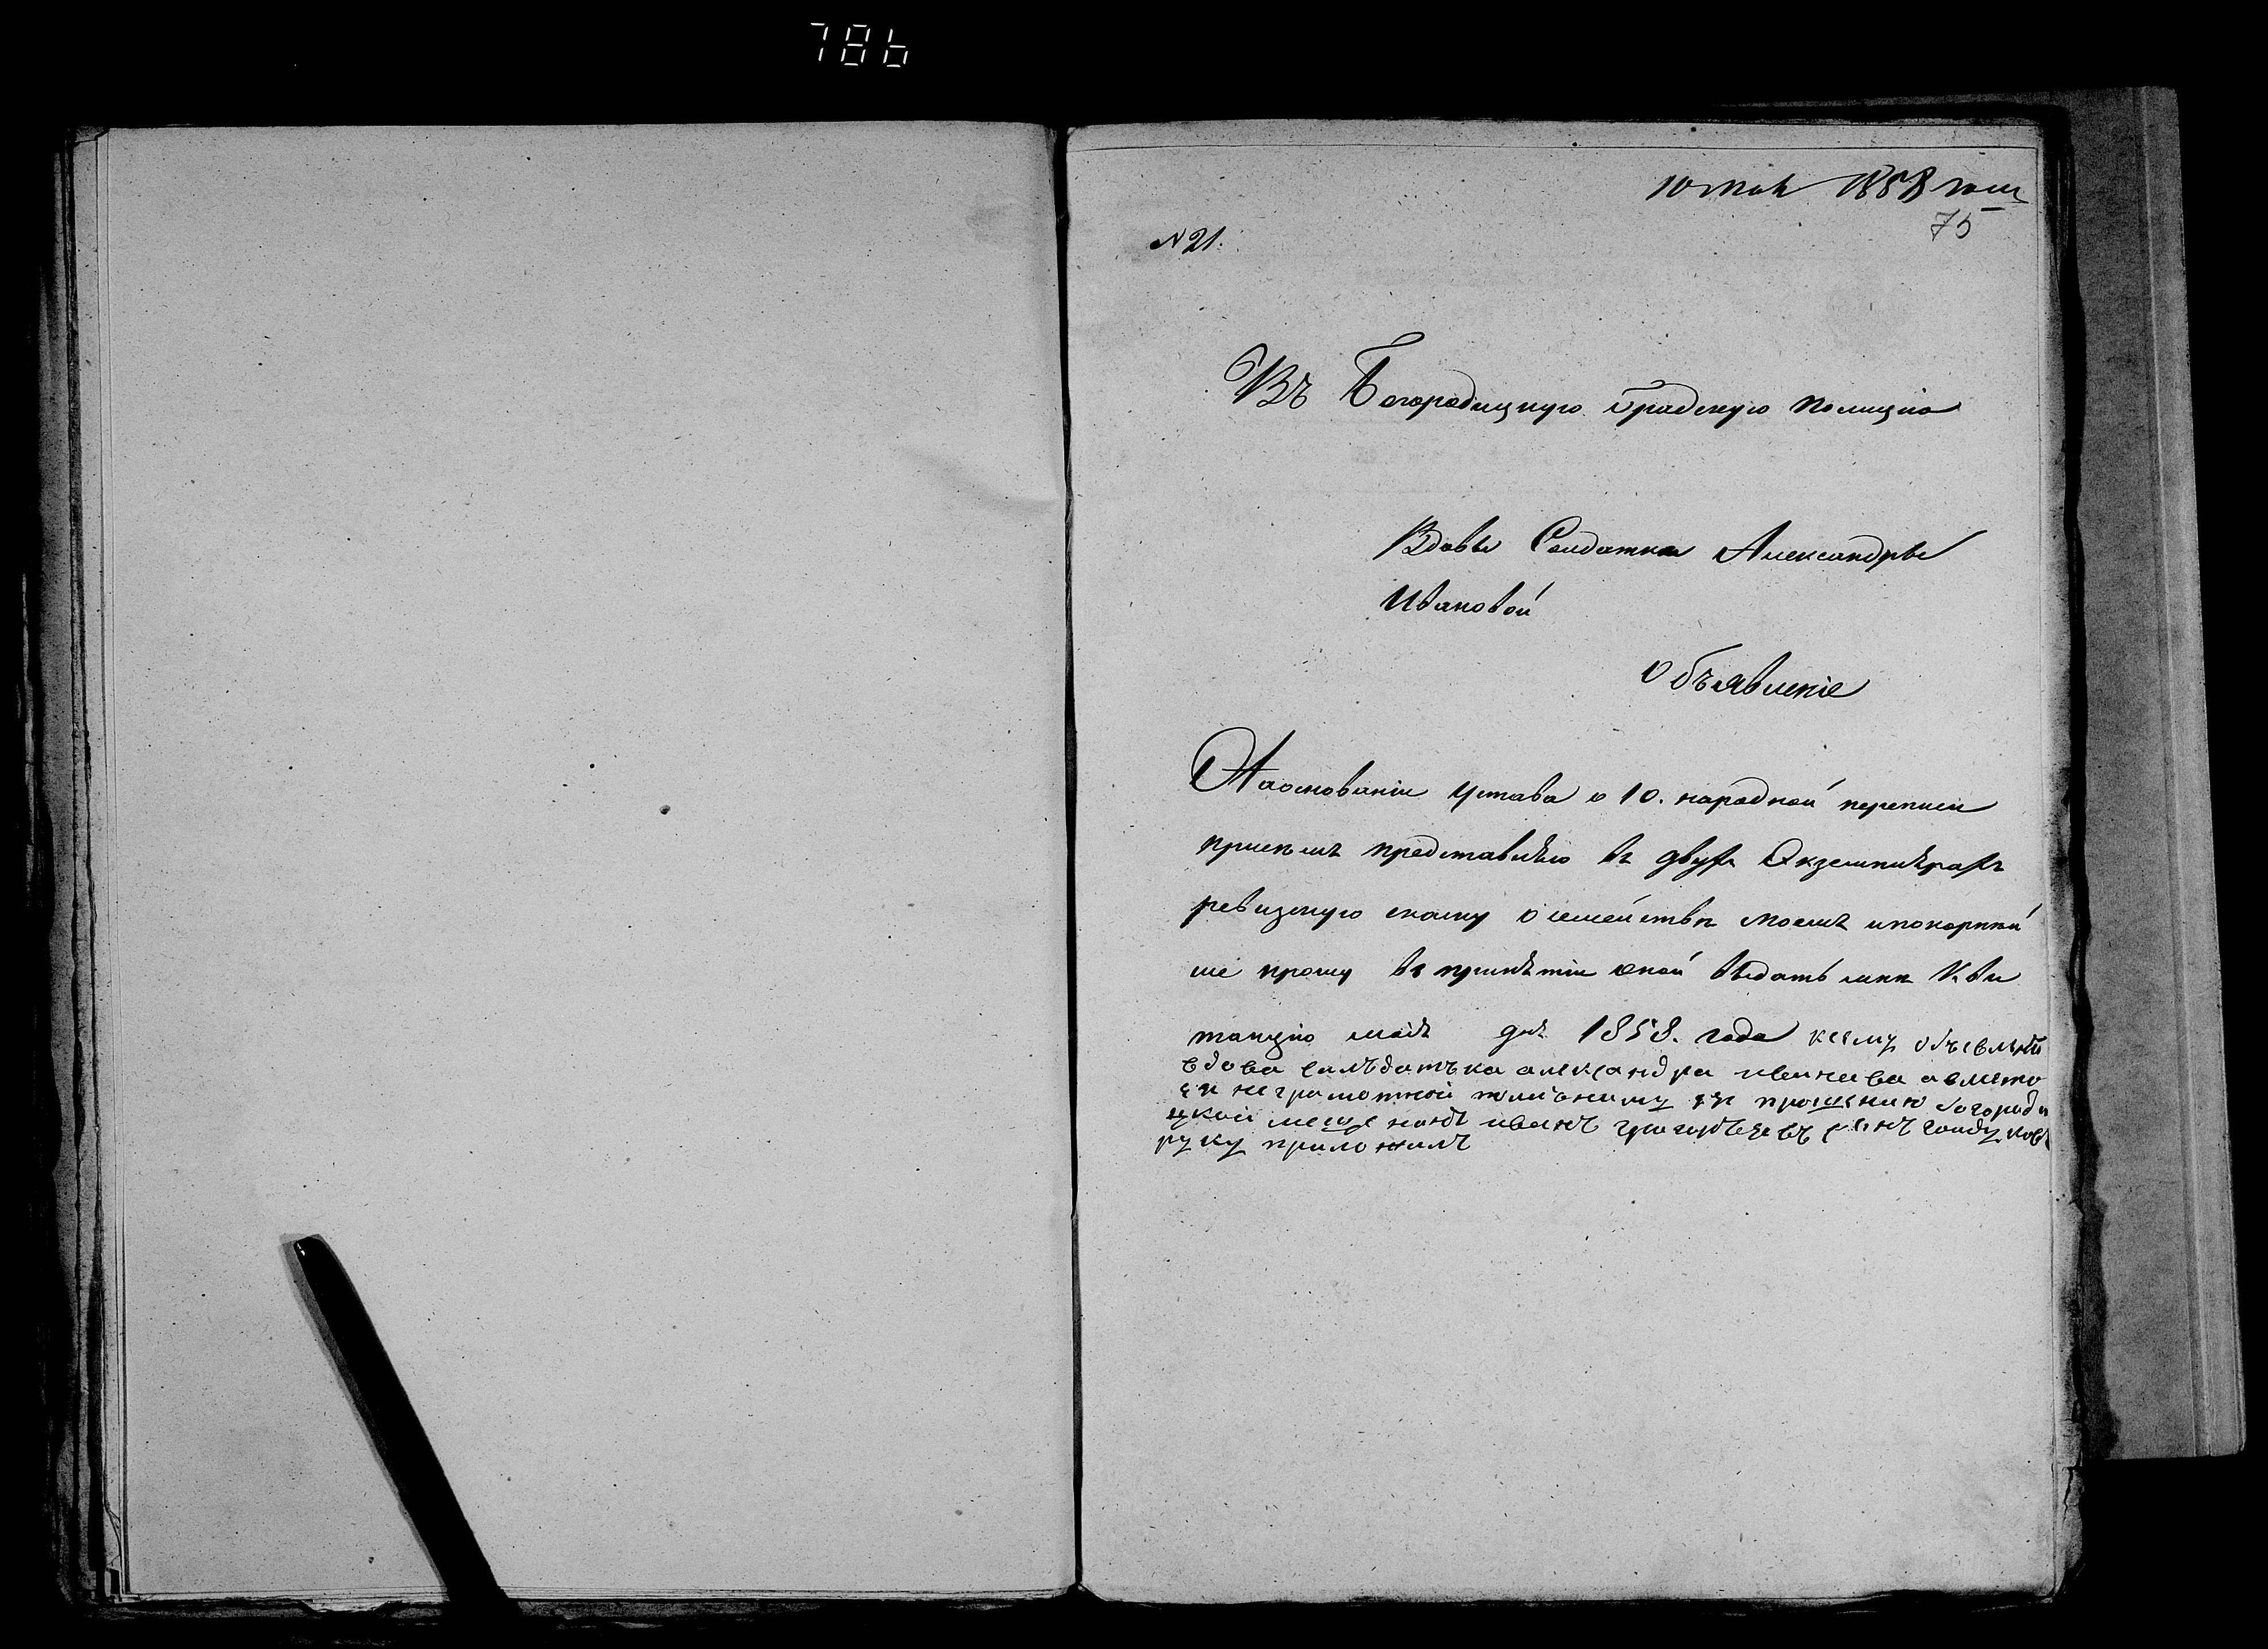 786
10 мая 1858 года
75
N 21.
Въ Богородицкую Градскую Полицію
Вдовы Солдатки Александры
Ивановой
Объявленіе
На основаніи Устава о 10. народной переписи
присемъ представляю въ двухъ Экземплярахъ
ревизскую скаску о семействѣ моемъ и покорнѣй
ше прошу въ принятіи оной выдать мнѣ Кви
танцію маія дня 1858. года ксему объевленію
вдова салъдатъка александра иванава авмѣсто
ея неграмотной поличному ея прошению богороди
цкой мещенинъ иванъ григорьевъ сынъ
руку приложилъ